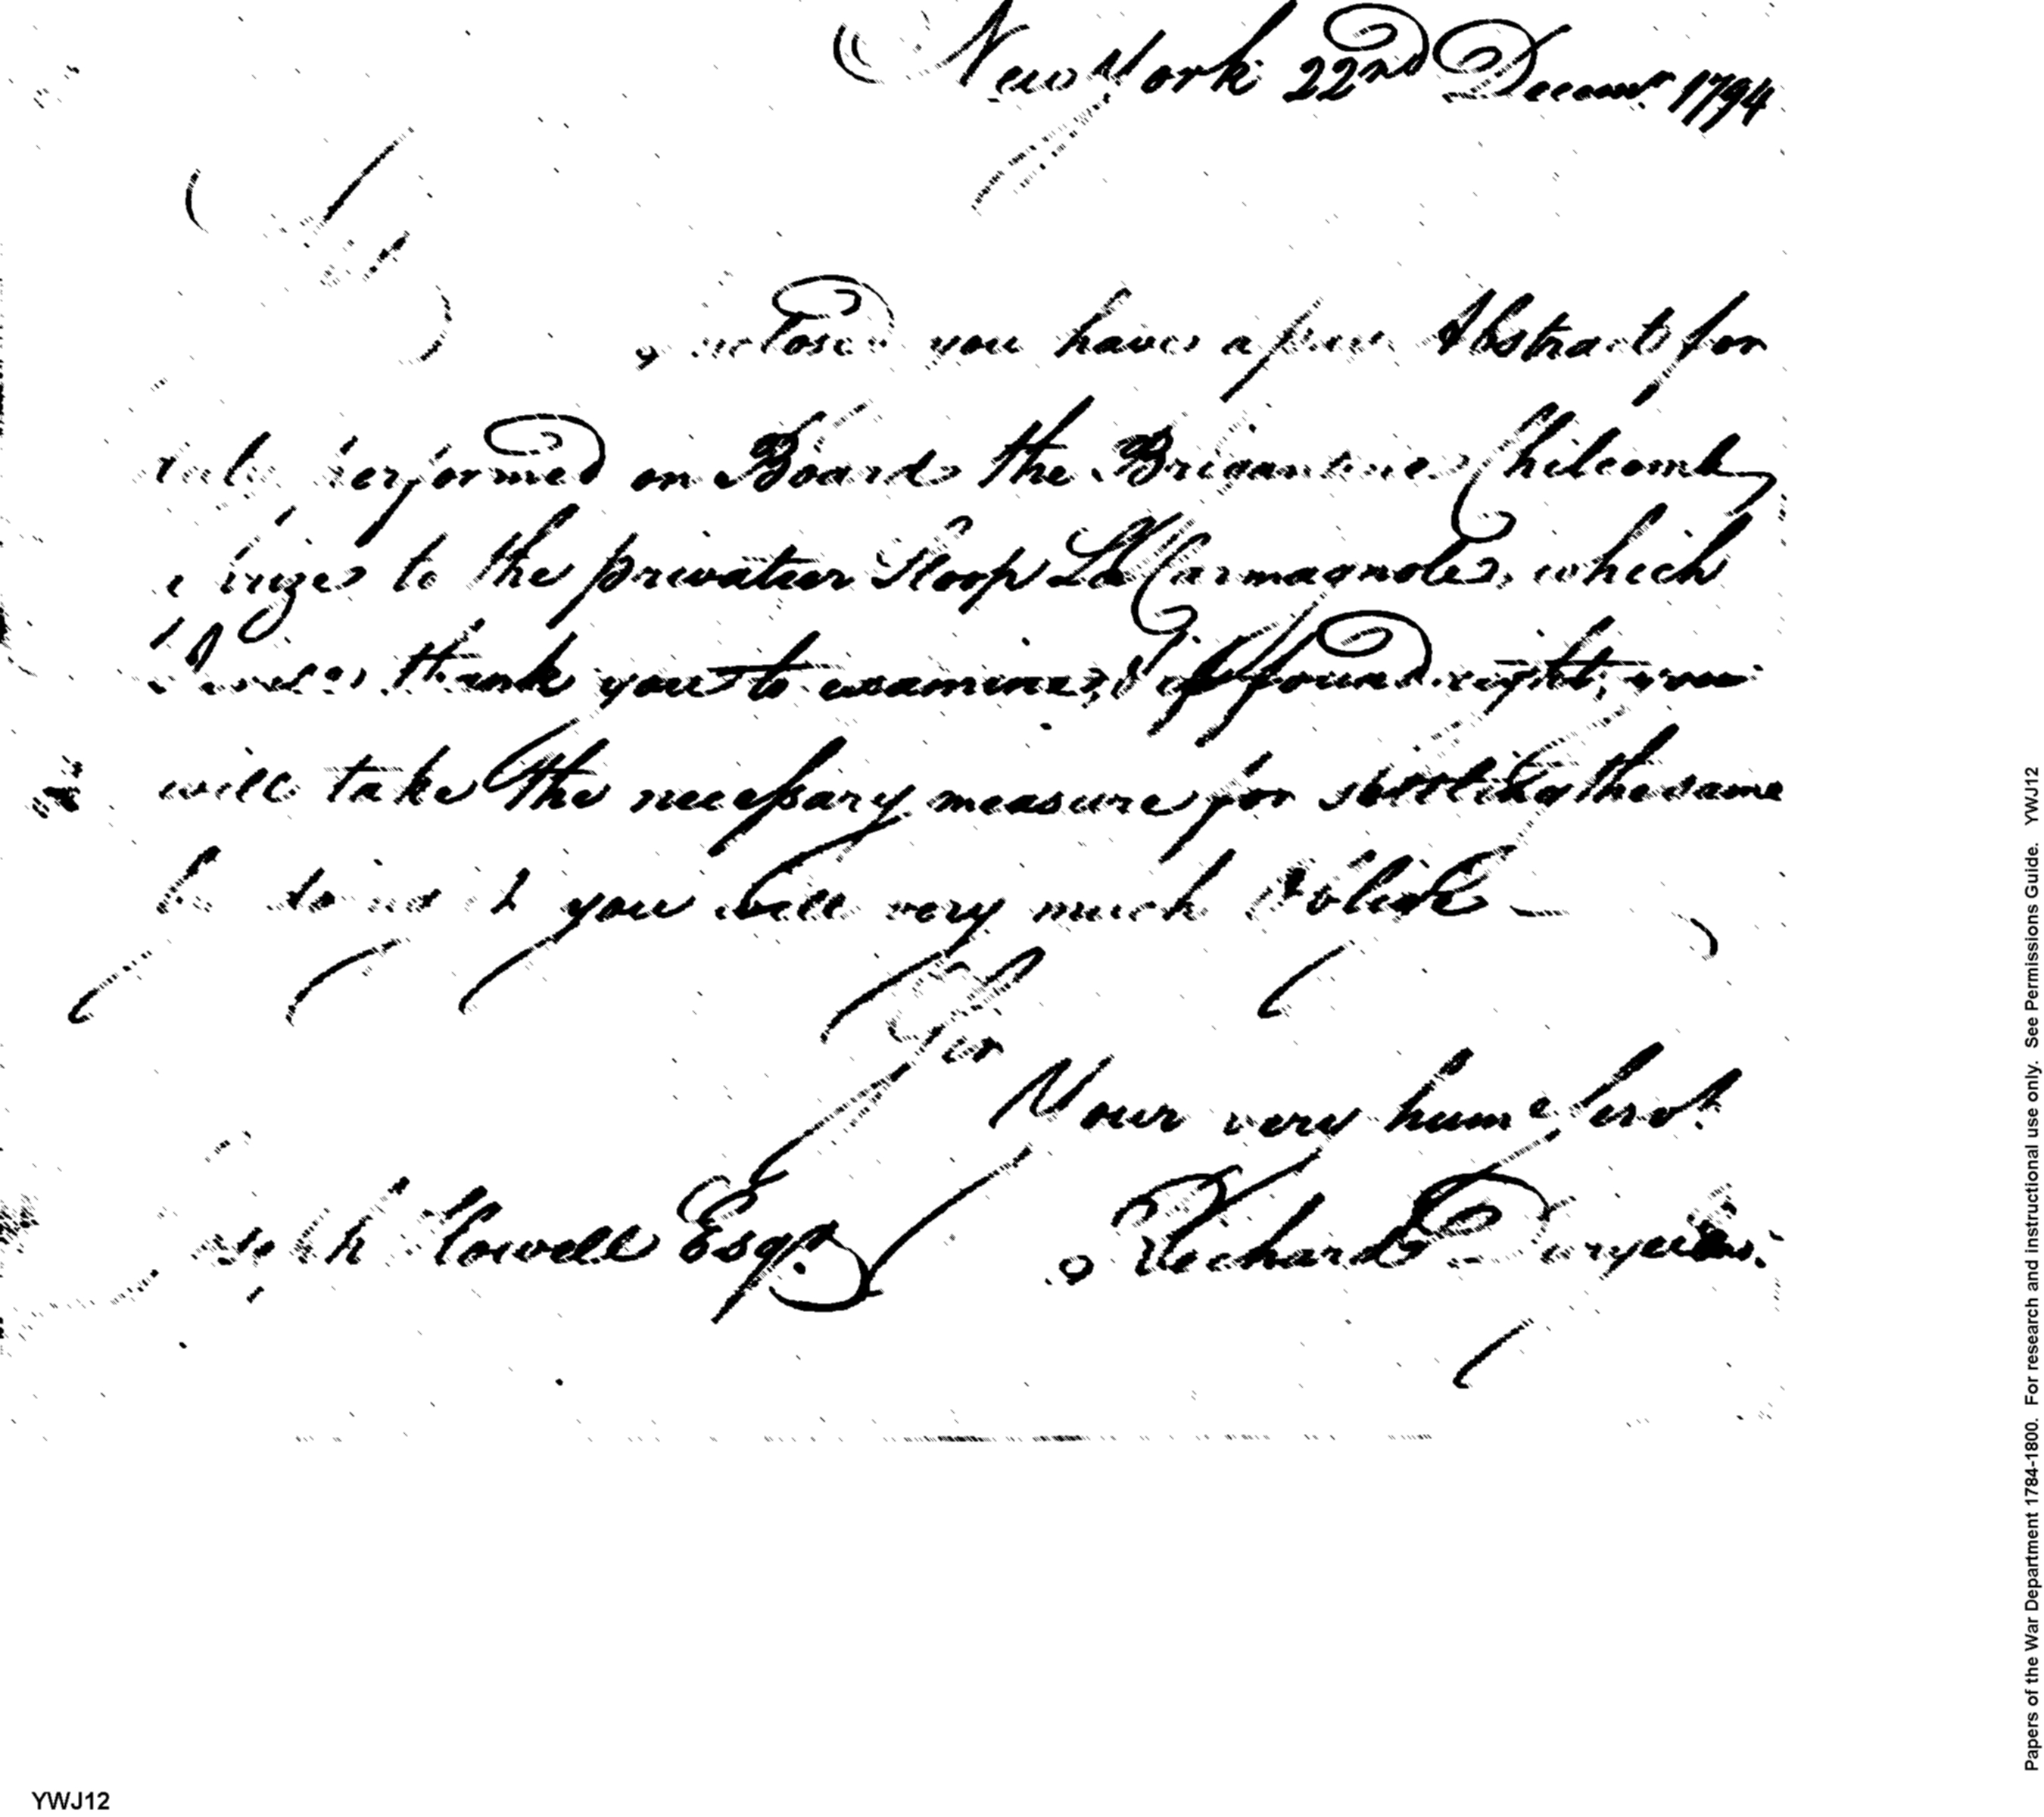 New York 22nd Decemr 1794
Sir
Inclosed you have a few Abstracts for
performed on Board the Brigantine Chilcomb
prizes to the privateer Sloop La Carmagnole, which
I will thank you to examine, & if found right, you
will take the necessary measure for settling the same
doing it you will very much Oblige —
Sir
Your very humle servt.
Joseph Howell Esqr.
Richard
Papers of the War Department 1784-1800. For research and instructional use only. See Permissions Guide. YWJ12
YWJ12